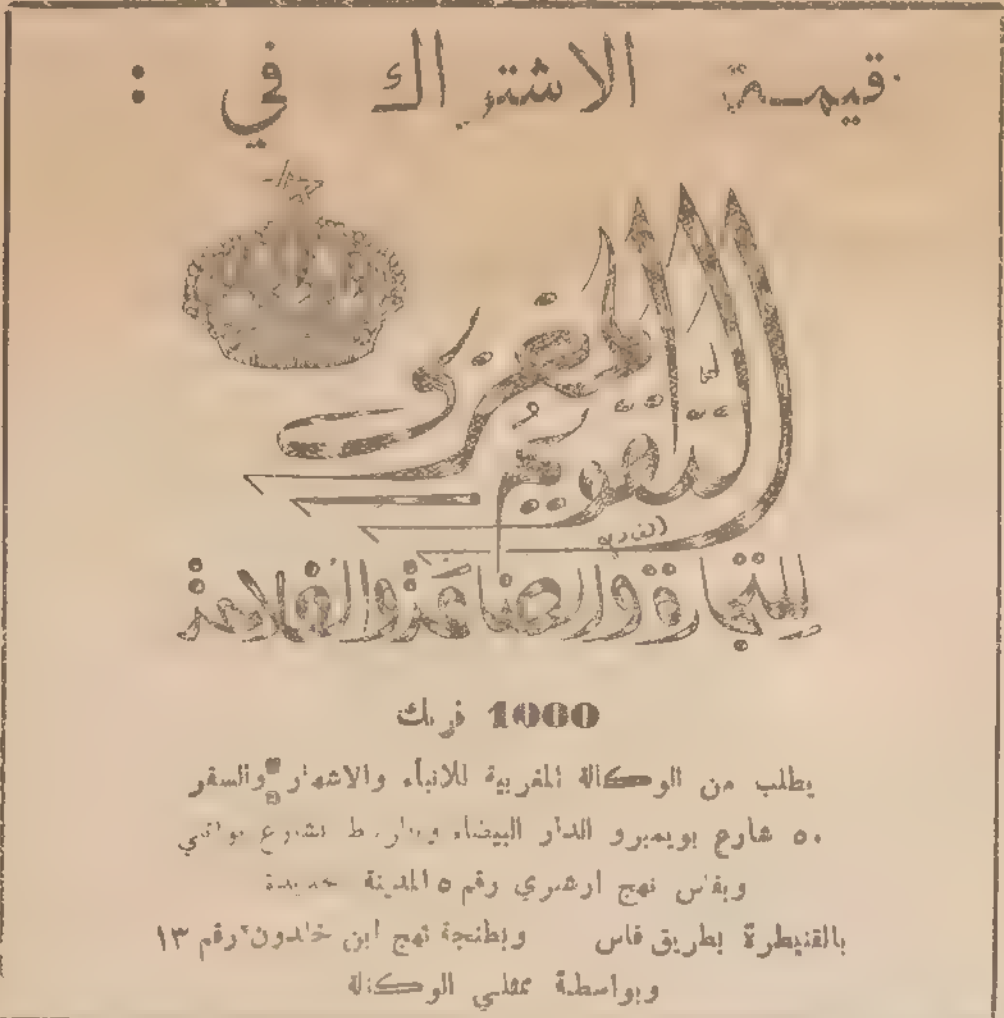 قيمة الاشتراك في :
التقويم المغربي
للتجارة والصناعة والفلاحة
1000 فرنك
يطلب من الوكالة المغربية للانباء والاشهار والسفر
٥٠ شارع بويمبرو الدار البيضاء وبالرباط بشارع
وبفاس نهج ارشري رقم ٥ المدينة الجديدة
بالقنيطرة بطريق فاس وبطنجة نهج ابن خلدون رقم ١٣
وبواسطة ممثلي الوكالة